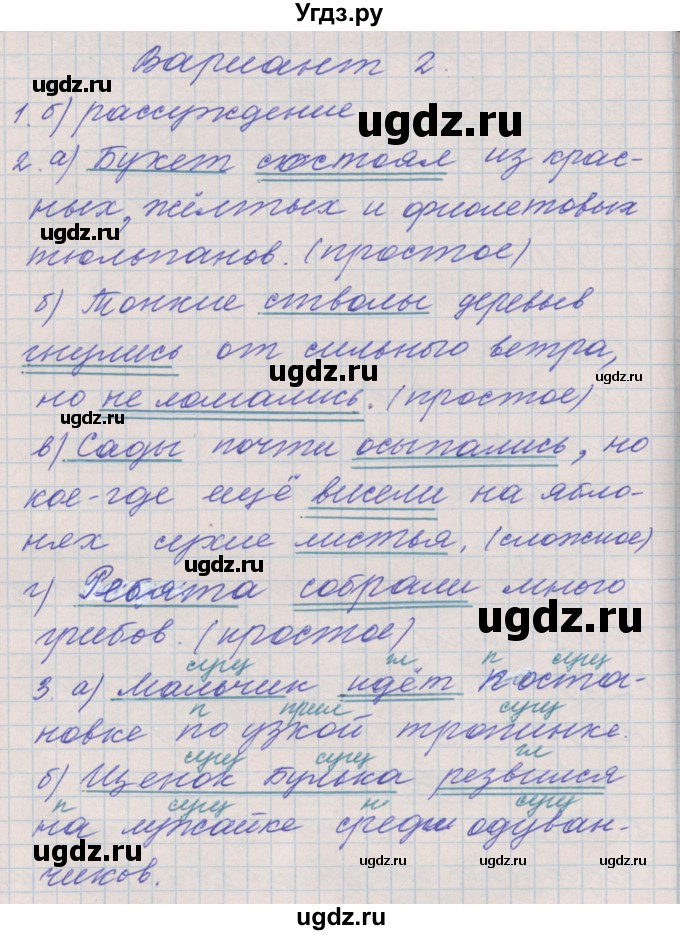 Угдз.ру
Вариант 2.
ugdz.ru
1. б) рассуждение
ugdz.ru
2. а) Букет состоял из крас-
ных, жёлтых и фиолетовых
ugdz.ru
тюльпанов. (простое)
ugdz.ru
б) Тонкие стволы деревьев
гнулись от сильного ветра,
ugdz.ru
ugdz.ru
но не ломались. (простое)
ugdz.ru
в) Сады почти осыпались, но
кое-где ещё висели на ябло-
нях сухие листья. (сложное)
ugdz.ru
г) Ребята собрали много
ugdz.ru
грибов. (простое)
сущ гл п сущ
3. а) Мальчик идёт к оста-
п прил сущ
новке по узкой тропинке.
сущ сущ гл
б) Щенок Булька резвился
п сущ п сущ
на лужайке среди одуван-
ugdz.ru
ugdz.ru
ugdz.ru
чиков.
ugdz.ru